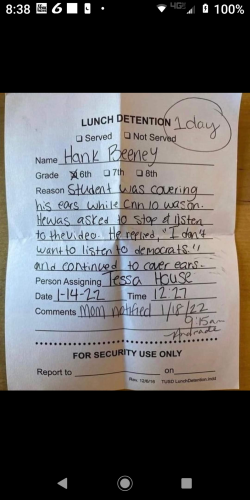 8:38 M 6 4G 100%
LUNCH DETENTION
1 day
☐ Served ☐ Not Served
Name Hank Beeney
Grade ☒ 6th ☐ 7th ☐ 8th
Reason Student was covering
his ears while Cnn 10 was on.
He was asked to stop & listen
to the video. He replied, "I don't
want to listen to democrats"
and continued to cover ears.
Person Assigning Tessa House
Date 1-14-22 Time 12:27
Comments Mom notified 1/18/22
9:15am
FOR SECURITY USE ONLY
Report to on
Rev. 12/6/16 TUSD LunchDetention.indd